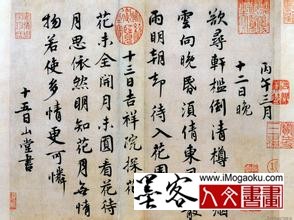 丙午三月
十二日晚
欲尋軒檻倒清樽
雲向晚昏須倩東風
雨明朝却待入花
十三日吉祥院探
花未全開月未圓看花待
月思依然明知花月無情
物若使多情更可憐
十五日山堂書
www.iMogaoku.com
墨客
人文書畫